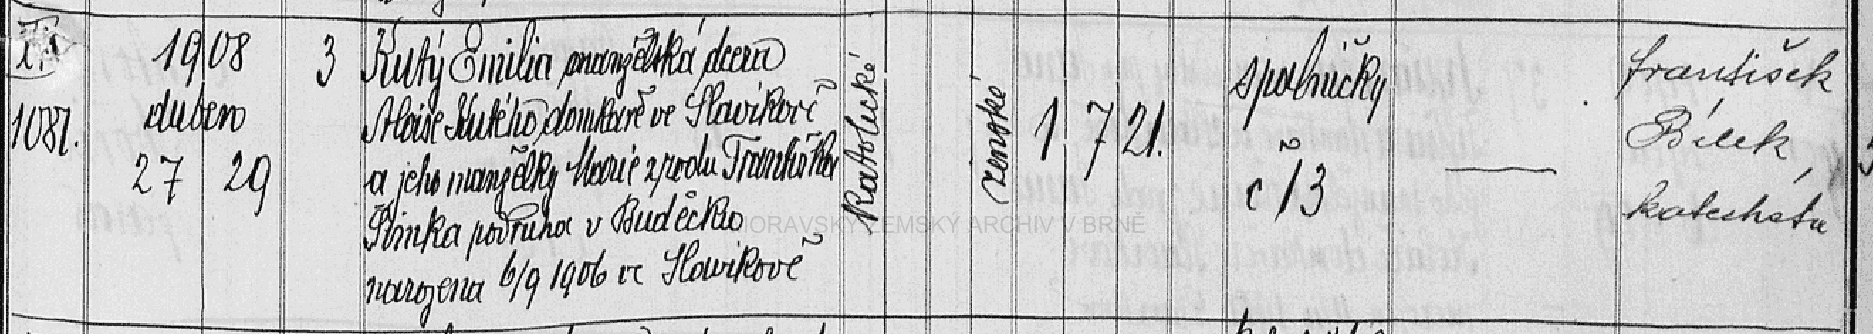 XII 1908 3 Kutý Emilia manželská dcera
Aloise Kutého domkaře ve Slavíkově
a jeho manželky Marie z rodu Františka
Pinka podruha v Buděčku
narozena 6/9 1906 ve Slavíkově
1087.
duben
27 29
Katolické
ženské
1 7 21.
spalničky
č 13
František
Bílek
katecheta
MORAVSKÝ ZEMSKÝ ARCHIV V BRNĚ